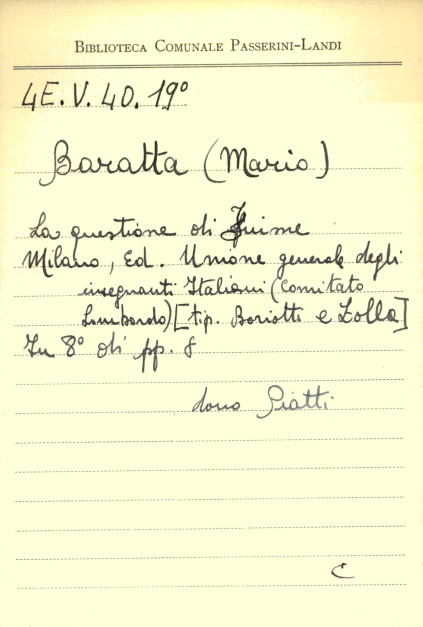 BIBLIOTECA COMUNALE PASSERINI-LANDI
4E.V.40.19º
Baratta (Mario)
La questione di Fiume
Milano, Ed. Unione generale degli
insegnanti Italiani (Comitato
Lombardo) [tip. Boriotti e Zolla]
In 8º di pp. 8
dono Piatti
C